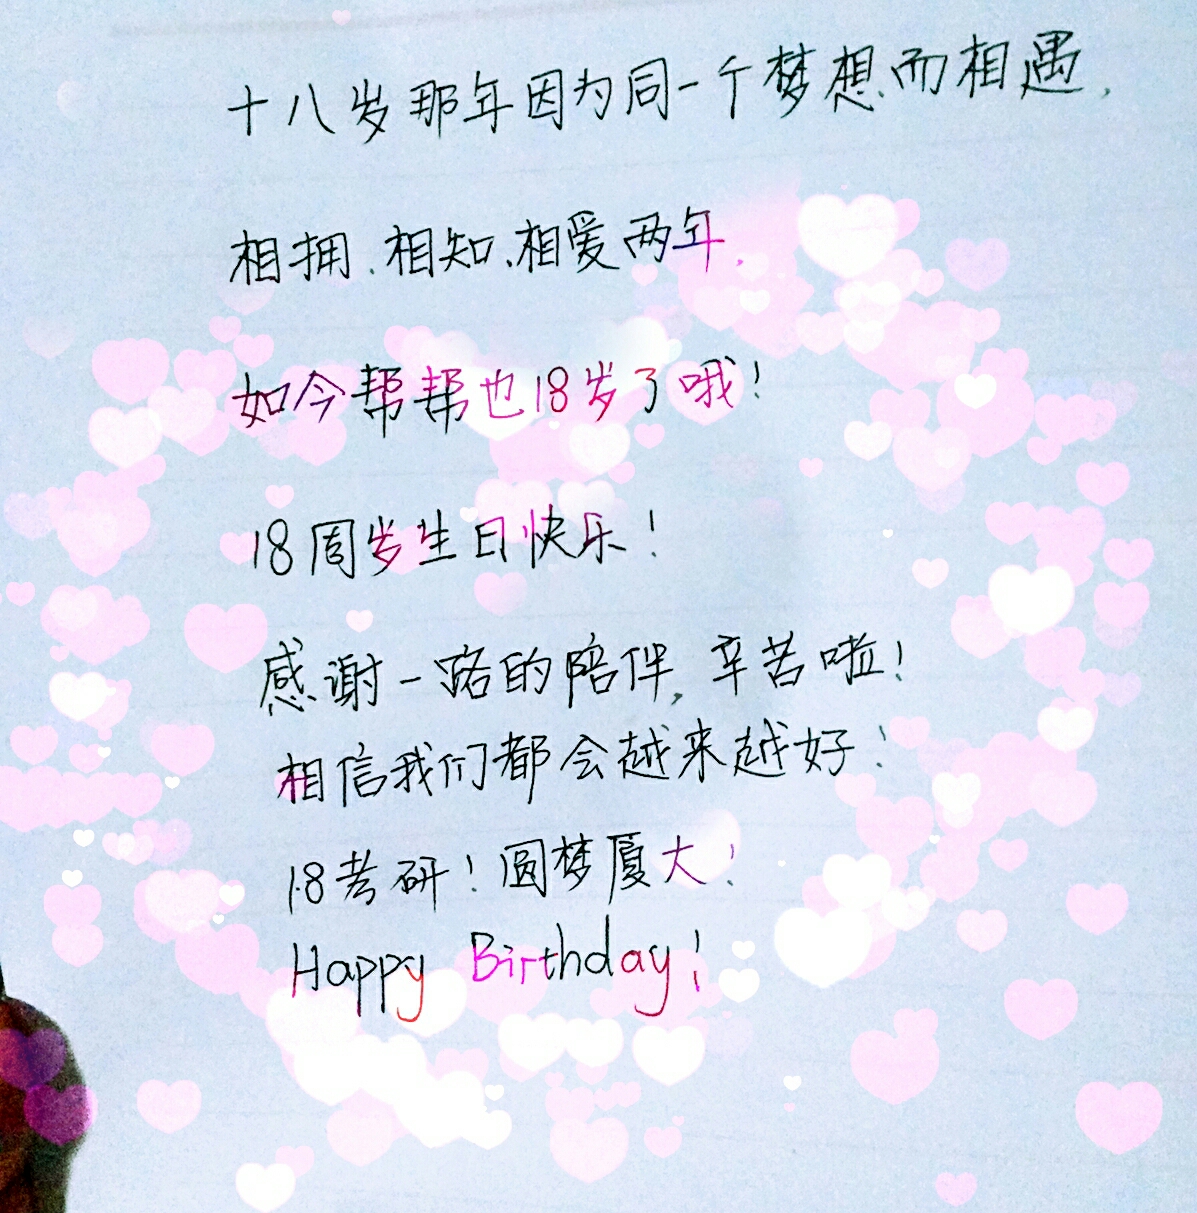 十八岁那年因为同一个梦想而相遇，
相拥、相知、相爱两年，
如今帮帮也18岁了哦！
18周岁生日快乐！
感谢一路的陪伴，辛苦啦！
相信我们都会越来越好！
18考研！圆梦厦大！
Happy Birthday！